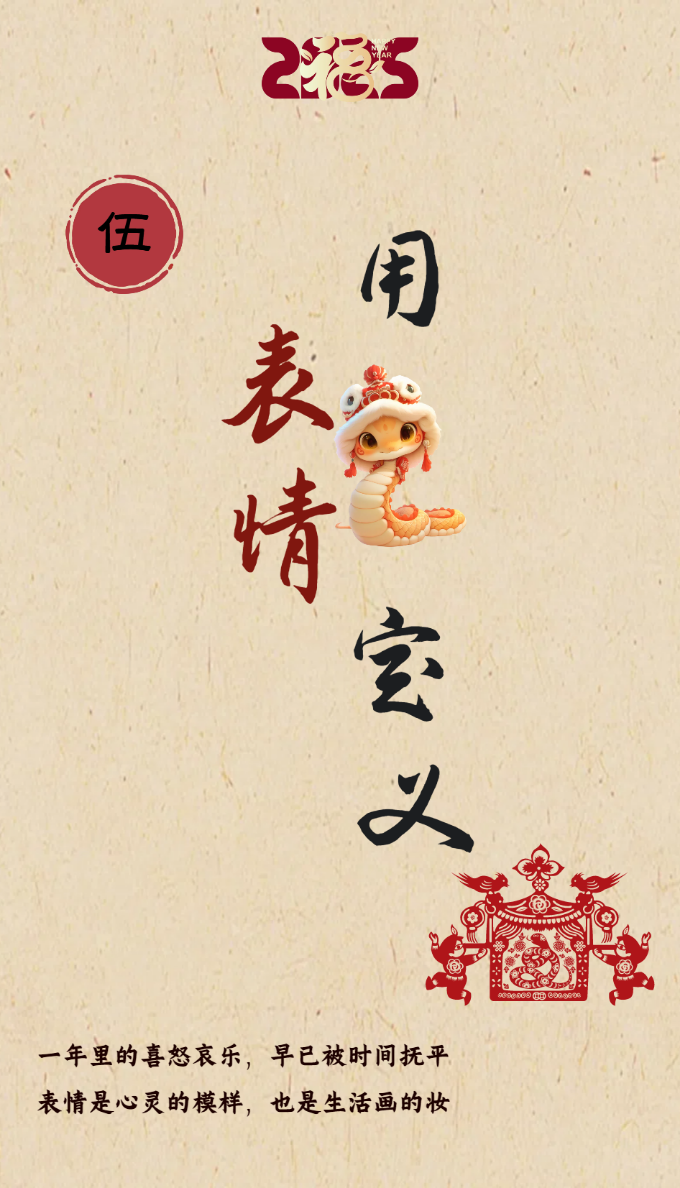 2025
福
NEW
YEAR
伍
用
表情
定义
一年里的喜怒哀乐，早已被时间抚平
表情是心灵的模样，也是生活画的妆